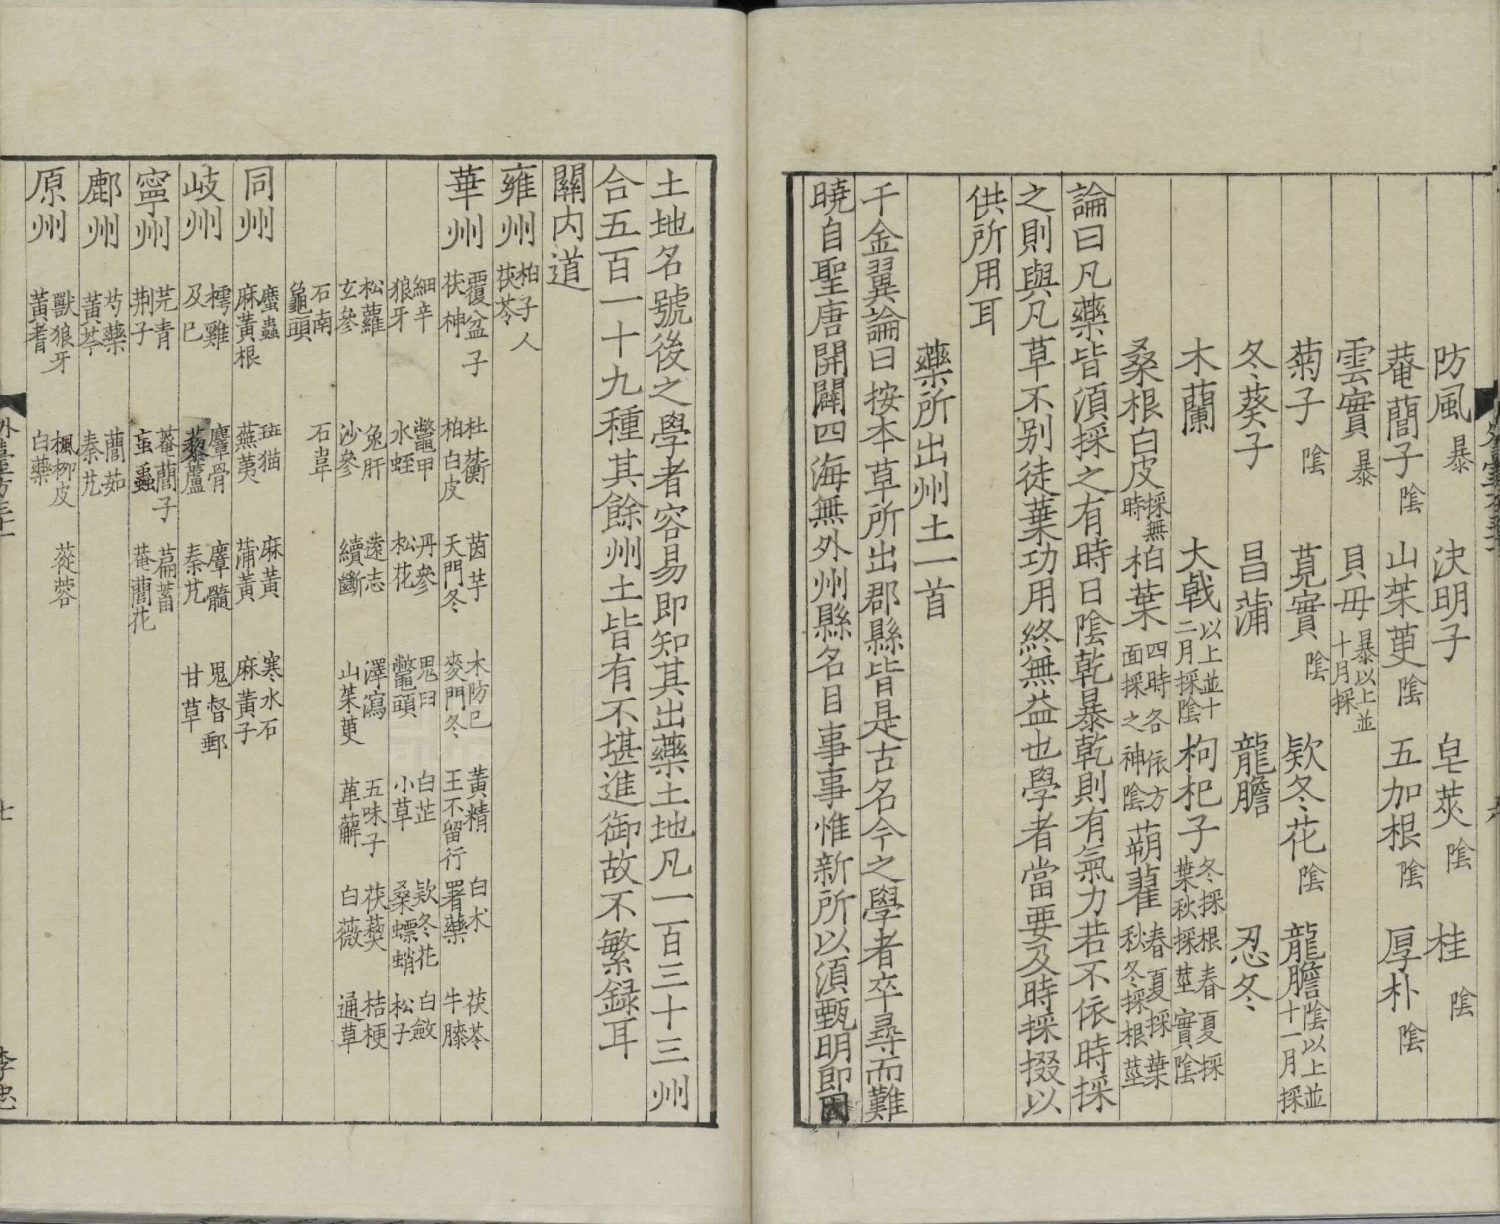 防風暴　決明子　皂莢陰　桂陰
菴䕡子陰　山茱萸陰　五加根陰　厚朴陰
雲實暴　貝母暴以上並十月採
菊子陰　莧實陰　欵冬花陰　龍膽陰以上並十一月採
冬葵子　昌蒲　龍膽　忍冬
木蘭　大戟以上並十二月採陰　枸杞子冬採根春夏採葉秋採莖實陰
桑根白皮採無時　柏葉四時各依方面採之神陰　蒴藋春夏採葉秋冬採根莖
論曰凡藥皆須採之有時日陰乾暴乾則有氣力若不依時採
之則與凡草不别徒葉功用終無益也學者當要及時採掇以
供所用耳
藥所出州土一首
千金翼論曰按本草所出郡縣皆是古名今之學者卒尋而難
曉自聖唐開闢四海無外州縣名目事事惟新所以須甄明即因
土地名號後之學者容易即知其出藥土地凡一百三十三州
合五百一十九種其餘州土皆有不堪進御故不繁録耳
關内道
雍州　柏子人　茯苓
華州　覆盆子　杜蘅　茵芋　木防已　黃精　白朮　茯苓
茯神　柏白皮　天門冬　麥門冬　王不留行　署藥　牛膝
細辛　鼈甲　丹參　鬼臼　白芷　欵冬花　白斂
狼牙　水蛭　松花　鼈頭　小草　桑螵蛸　松子
松蘿　兔肝　遠志　澤瀉　五味子　茯藇　桔梗
玄參　沙參　續斷　山茱萸　萆薢　白薇　通草
石南　石韋
龜頭
同州　䗪蟲　斑猫　麻黃　寒水石
麻黃根　蕪荑　蒲黃　麻黃子
岐州　樗雞　麞骨　麞髓　鬼督郵
及巳　藜蘆　秦艽　甘草
寧州　芫青　菴䕡子　萹蓄
荆子　䖟蟲　菴䕡花
鄜州　芍藥　䕡茹
黃芩　秦艽
原州　獸狼牙　楓柳皮　蓯蓉
黃耆　白藥
七
李忠